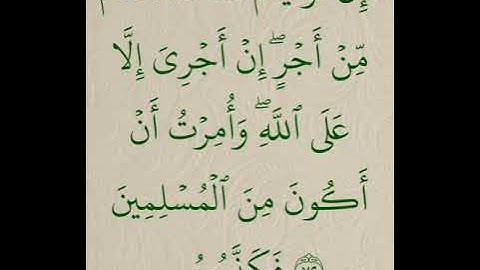 مِّنۡ أَجۡرٍۖ إِنۡ أَجۡرِىَ إِلَّا
عَلَى ٱللَّهِۖ وَأُمِرۡتُ أَنۡ
أَكُونَ مِنَ ٱلۡمُسۡلِمِينَ